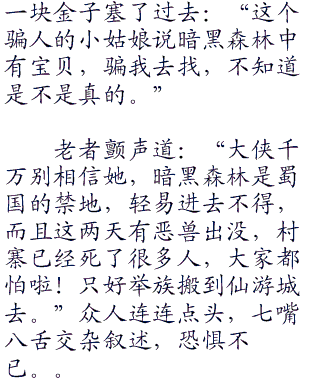 一块金子塞了过去：“这个
骗人的小姑娘说暗黑森林中
有宝贝，骗我去找，不知道
是不是真的。”
老者颤声道：“大侠千
万别相信她，暗黑森林是蜀
国的禁地，轻易进去不得，
而且这两天有恶兽出没，村
寨已经死了很多人，大家都
怕啦！只好举族搬到仙游城
去。”众人连连点头，七嘴
八舌交杂叙述，恐惧不
已。。